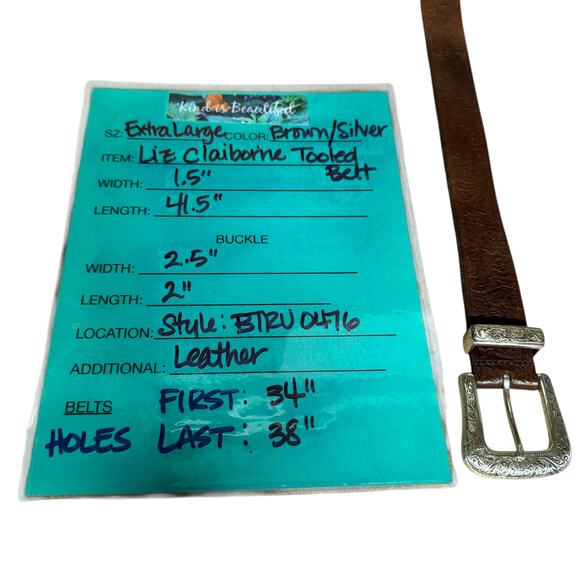 Kind is Beautiful
SZ: Extra Large COLOR: Brown/Silver
ITEM: Liz Claiborne Tooled
Belt
WIDTH: 1.5"
LENGTH: 41.5"
BUCKLE
WIDTH: 2.5"
LENGTH: 2"
LOCATION: Style: BTRU0476
ADDITIONAL: Leather
BELTS FIRST: 34"
HOLES LAST: 38"